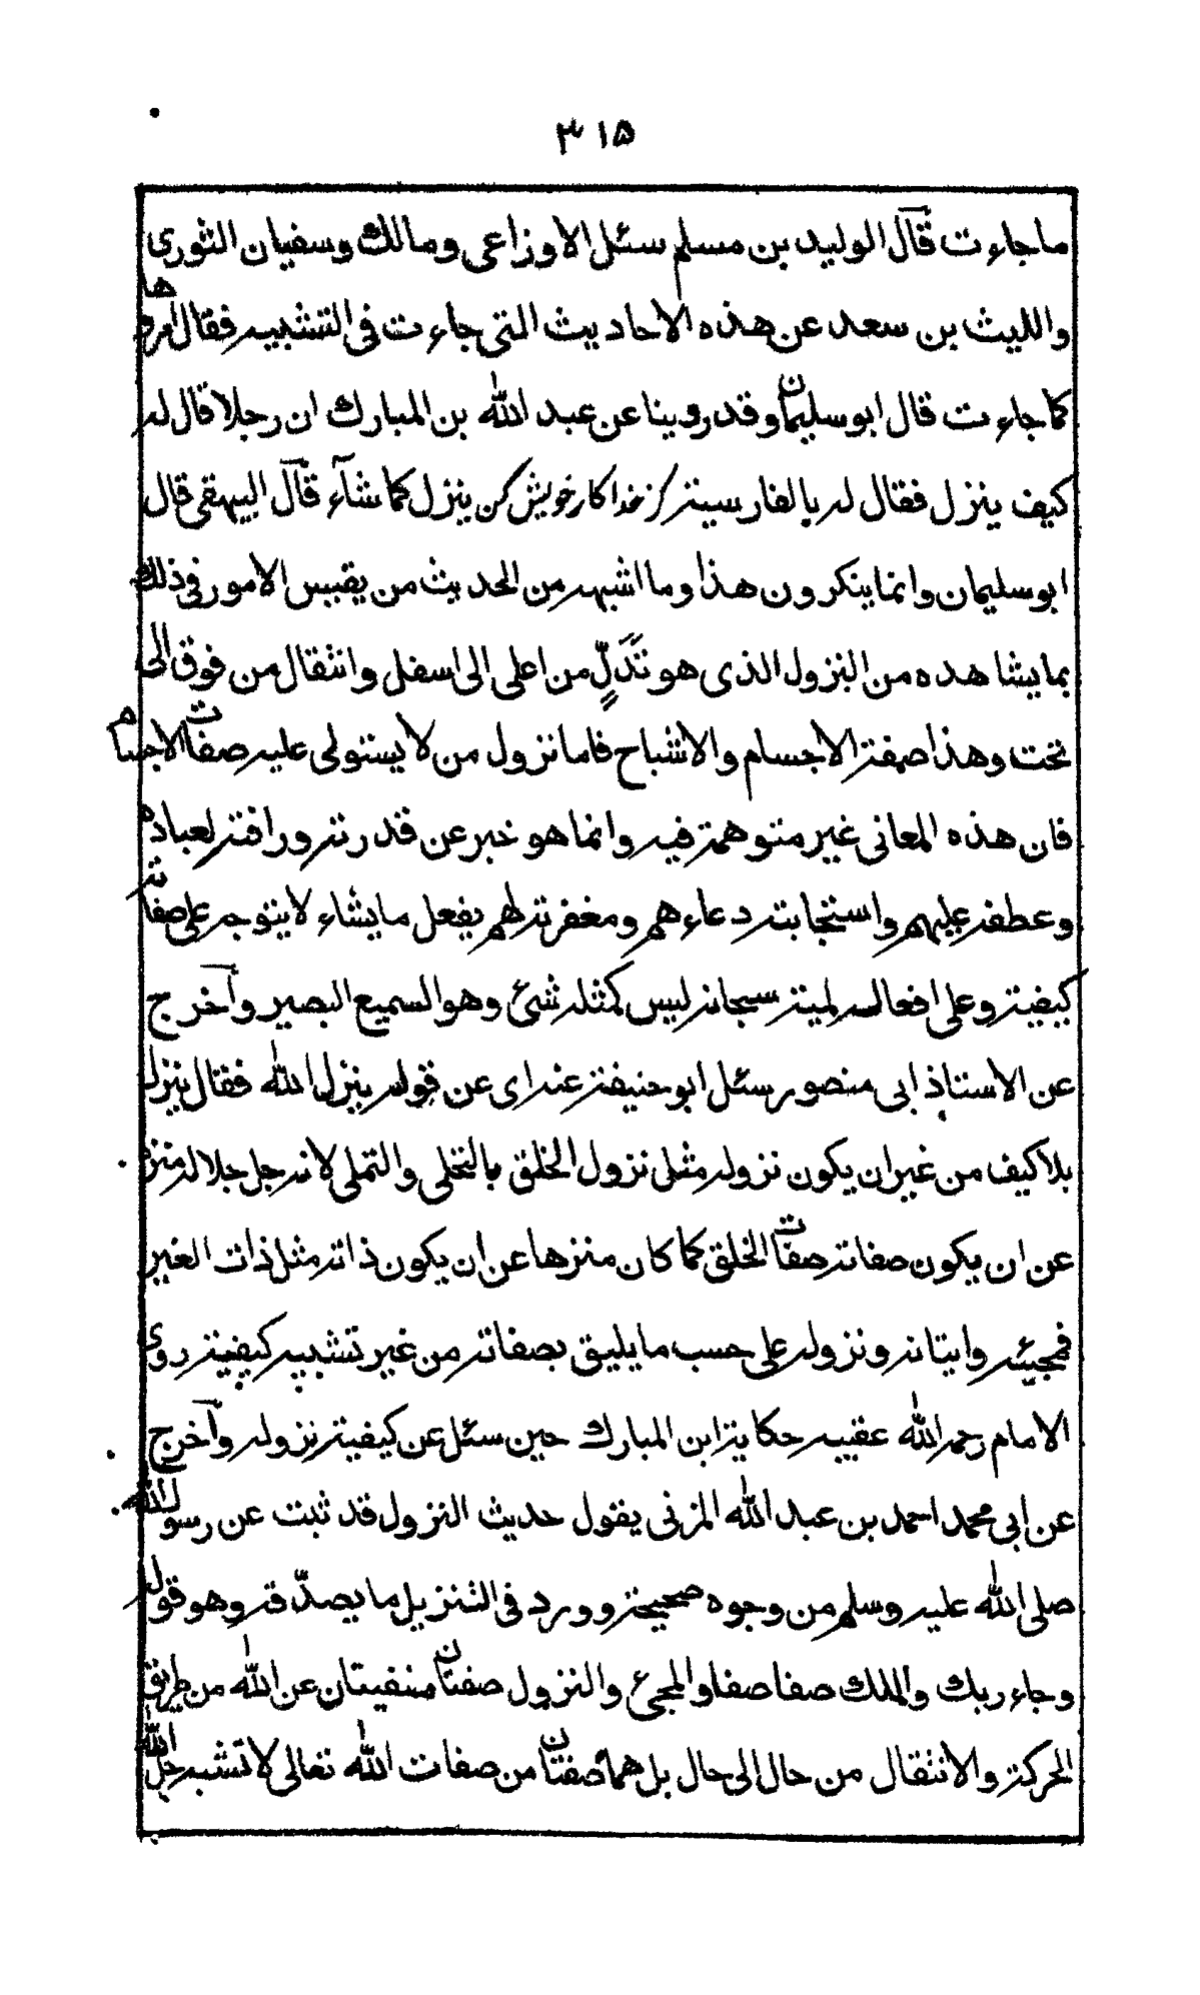 ۳۱۵
ما جاءت قال الوليد بن مسلم سئل الاوزاعى ومالك وسفيان الثورى
والليث بن سعد عن هذه الاحاديث التى جاءت فى التشبيه فقال امروها
كما جاءت قال ابو سليمان وقد روينا عن عبد الله بن المبارك ان رجلا قال له
كيف ينزل فقال له بالفارسية كز خدا كار خويش كن ينزل كما شاء قال البيهقى قال
ابو سليمان وانما ينكرون هذا وما اشبهه من الحديث من يقيس الامور فى ذلك
بما يشاهده من النزول الذى هو تَدَلٍّ من اعلى الى اسفل وانتقال من فوق الى
تحت وهذا صفة الاجسام والاشباح فاما نزول من لا يستولى عليه صفات الاجسام
فان هذه المعانى غير متوهمة فيه وانما هو خبر عن قدرته ورافته لعباده
وعطفه عليهم واستجابته دعاءهم ومغفرته لهم يفعل ما يشاء لا يتوجه على صفاته
كيفية وعلى افعاله لمية سبحانه ليس كمثله شئ وهو السميع البصير وآخرج
عن الاستاذ ابى منصور سئل ابو حنيفة عند اى عن قوله ينزل الله فقال ينزل
بلا كيف من غير ان يكون نزوله مثل نزول الخلق بالتخلى والتملى لانه جل جلاله منزه
عن ان يكون صفاته صفات الخلق كما كان منزها عن ان يكون ذاته مثل ذات الغير
فمجيئه واتيانه ونزوله على حسب ما يليق بصفاته من غير تشبيه كيفية روى
الامام رحمه الله عقيبه حكاية ابن المبارك حين سئل عن كيفية نزوله وآخرج
عن ابى محمد احمد بن عبد الله المزنى يقول حديث النزول قد ثبت عن رسول الله
صلى الله عليه وسلم من وجوه صحيحة وورد فى التنزيل ما يصدّقه وهو قوله
وجاء ربك والملك صفا صفا والمجئ والنزول صفتان منفيتان عن الله من طريق
الحركة والانتقال من حال الى حال بل هما صفتان من صفات الله تعالى لا تشبه جل الله